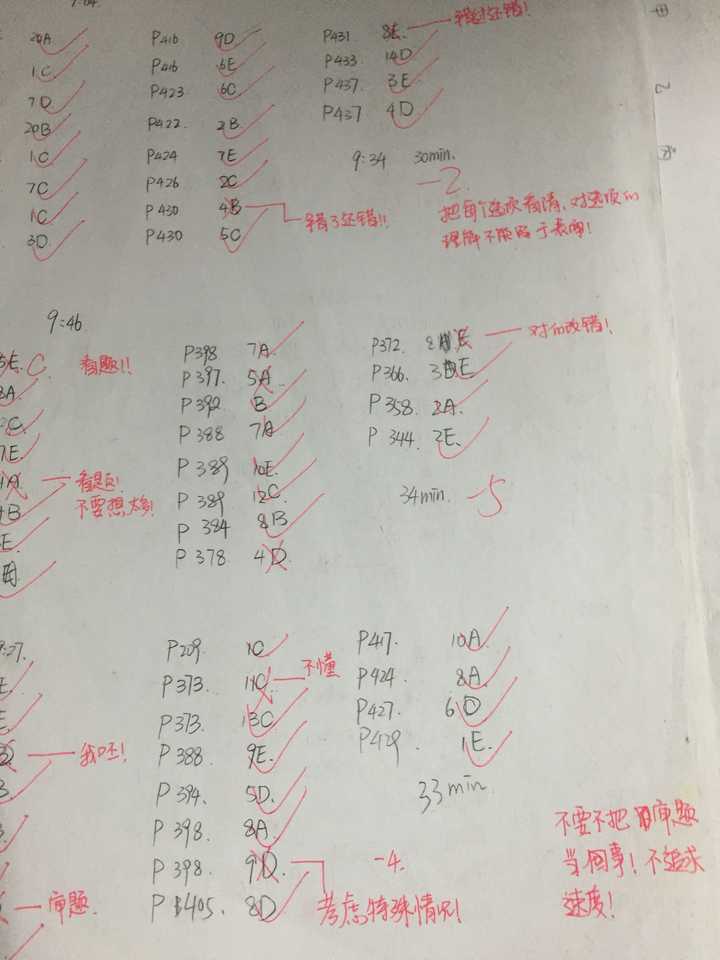 20A P416 9D P431 8E
1C P416 6E P433 14D
7D P423 6C P437 3E
20B P422 2B P437 4D
1C P424 7E
7C P426 2C 9:34 30min.
1C P430 4B 错了还错!! -2
3D P430 5C 把每个选项看清、对选项的
理解不限于表面!
9:46
C 看题!! P398 7A P372. E 对的改错!
P397. 5A P366. 3 E
P392 B P358. 2A.
7E. P388 7A P 344. 2E.
看题! P 389 10E.
不要想太多! P 389 12C 34min. -5
P 384 8B
P 378. 4D.
9:27. P209. 1C P417. 10A
P373. 11C 不懂 P424. 8A
P373. 13C P427. 6D
我呸! P388. 9E. P429. 1E.
P394. 5D. 33min
P398. 8A
P398 9D -4.
审题. P405. 8D 考虑特殊情况!
不要不把审题
当回事! 不追求
速度!